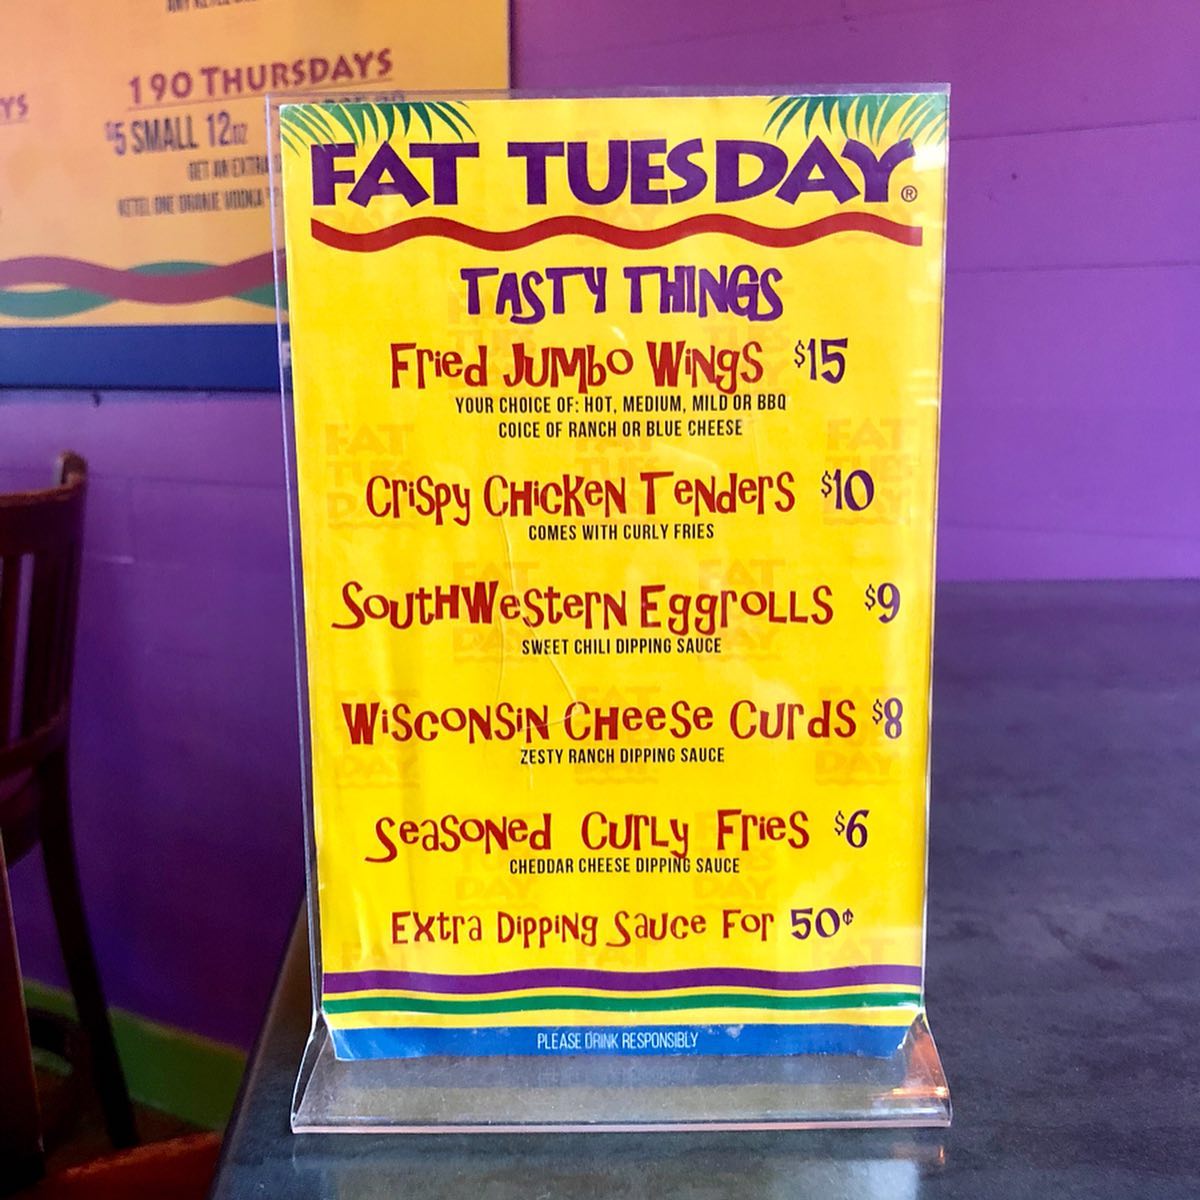 190 THURSDAYS
$5 SMALL 12oz
GET AN EXTRA
KETEL ONE ORANJE VODKA
FAT TUESDAY®
TASTY THINGS
Fried Jumbo Wings $15
YOUR CHOICE OF: HOT, MEDIUM, MILD OR BBQ
COICE OF RANCH OR BLUE CHEESE
Crispy Chicken Tenders $10
COMES WITH CURLY FRIES
Southwestern Eggrolls $9
SWEET CHILI DIPPING SAUCE
Wisconsin Cheese Curds $8
ZESTY RANCH DIPPING SAUCE
Seasoned Curly Fries $6
CHEDDAR CHEESE DIPPING SAUCE
Extra Dipping Sauce For 50¢
PLEASE DRINK RESPONSIBLY